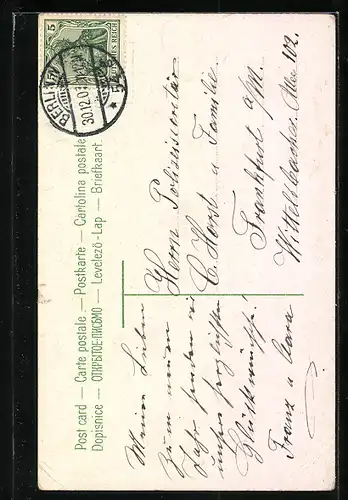 Post card — Carte postale — Postkarte — Cartolina postale
Dopisnice — ОТКРЫТОЕ ПИСЬМО — Levelező-Lap — Briefkaart
5
BERLIN
30.12.07
Herrn Polizeisecretär
C. Horst u Familie
Frankfurt a/M.
Wittelsbacher Allee 102.
Meine Lieben
Zum neuen
Jahr senden wir
unsere herzlichsten
Glückwünsche!
Franz u Clara